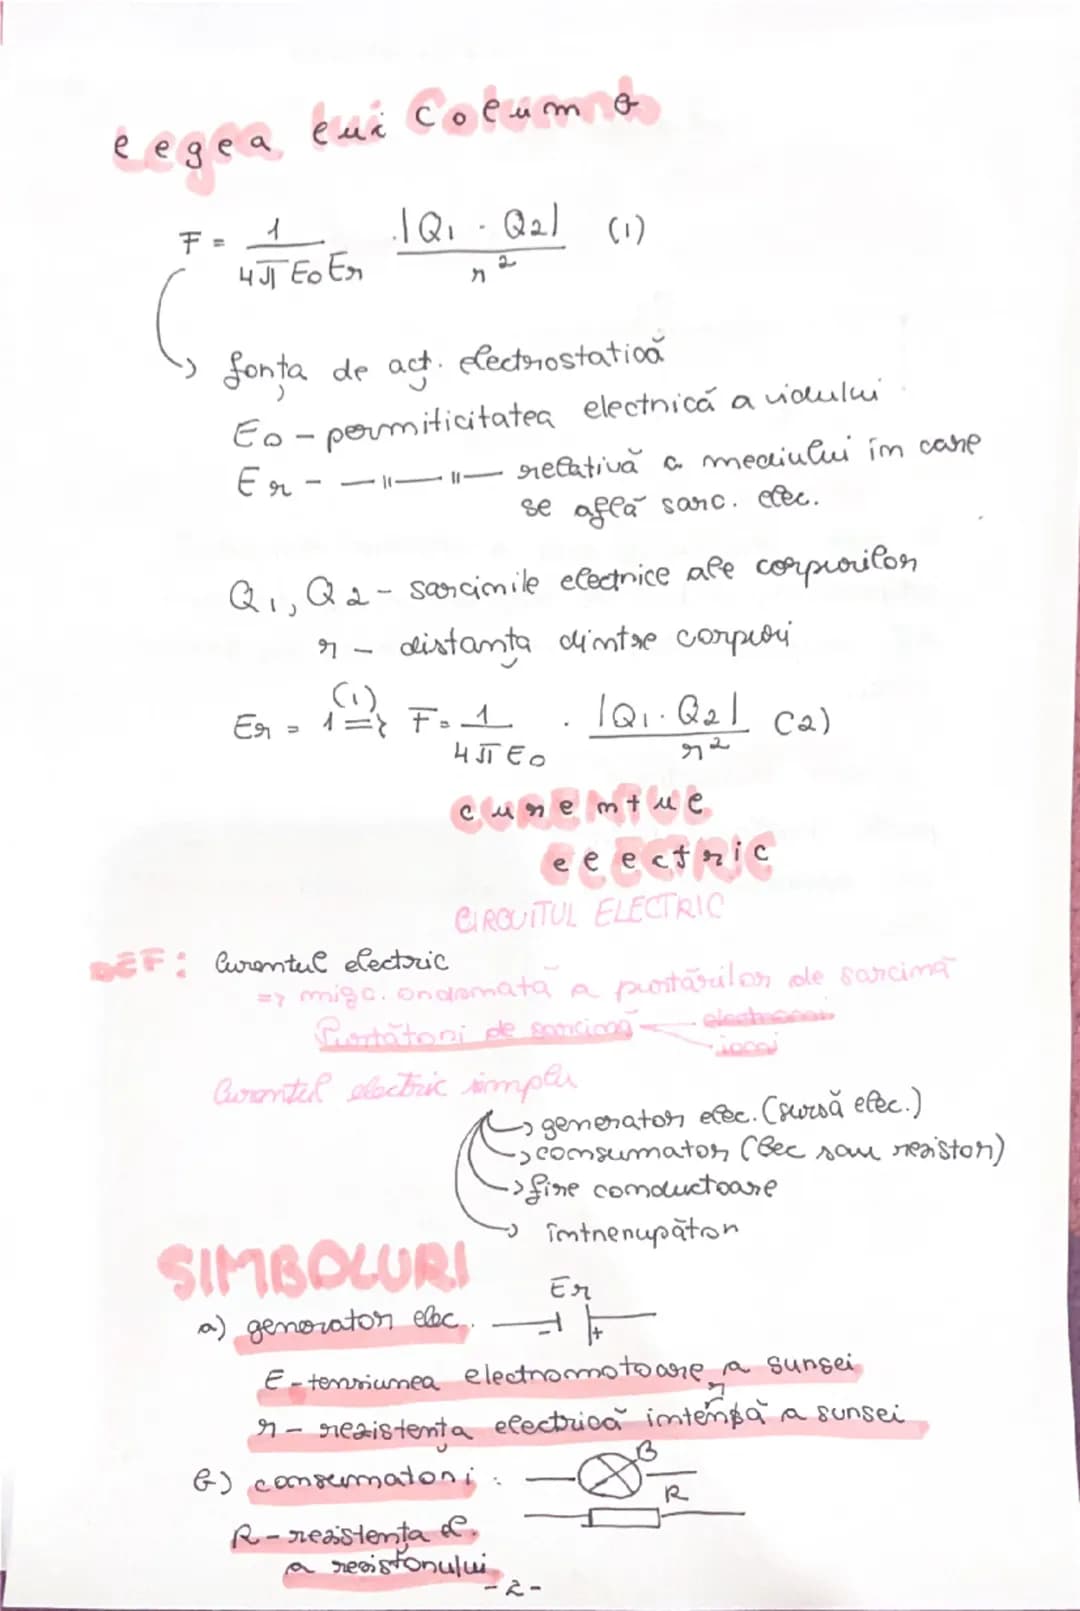 Legea lui Columb
F = 1/(4π ε0 εr) · |Q1 · Q2|/r² (1)
→ forța de act. electrostatică
ε0 - permiticitatea electrică a vidului
εr - —॥—॥— relativă a mediului în care
se află sarc. elec.
Q1, Q2 - sarcinile electrice ale corpurilor
r - distanța dintre corpuri
εr = 1 (1)=> F = 1/(4π ε0) · |Q1 · Q2|/r² (2)
CURENTUL
ELECTRIC
CIRCUITUL ELECTRIC
DEF: Curentul electric
=> mișc. ordonată a purtărilor de sarcină
Purtători de sarcină electroni
ioni
Curentul electric simplu
→ generator elec. (sursă elec.)
→ consumator (Bec sau rezistor)
→ fire conductoare
→ întrerupător
SIMBOLURI
E r
a) generator elec. - +
E - tensiunea electromotoare a sursei
r - rezistența electrică internă a sursei
b) consumatori: B
R
R - rezistența el.
a rezistorului
- 2 -